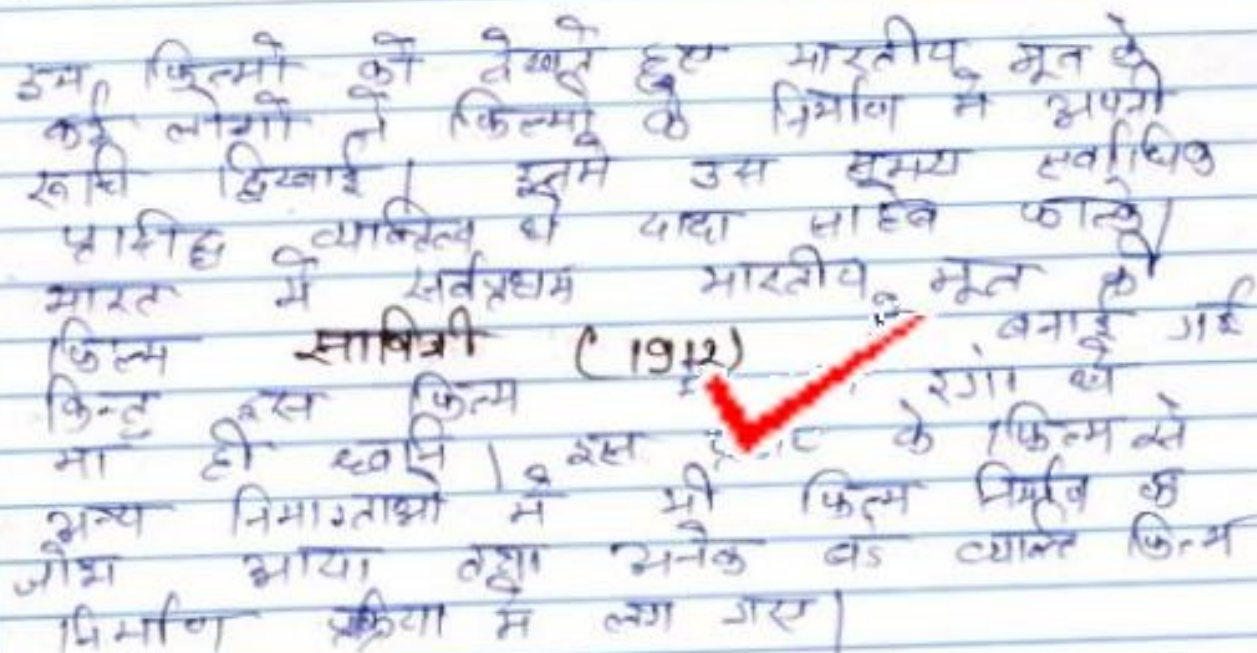 इन फिल्मो को देखते हुए भारतीय मूल के
कई लोगों ने फिल्मों के निर्माण में अपनी
रूचि दिखाई। इनमे उस समय सर्वाधिक
प्रसिद्ध व्यक्तित्व थे दादा साहेब फाल्के।
भारत में सर्वप्रथम भारतीय मूल की
फिल्म सावित्री (1912) बनाई गई
किन्तु इस फिल्म रंगो थे
ना ही ध्वनि। इस के फिल्म से
अन्य निमार्ताओ में भी फिल्म निर्माण का
जोश आया तथा अनेक बडे व्यक्ति फिल्म
निर्माण प्रक्रिया में लग गए।